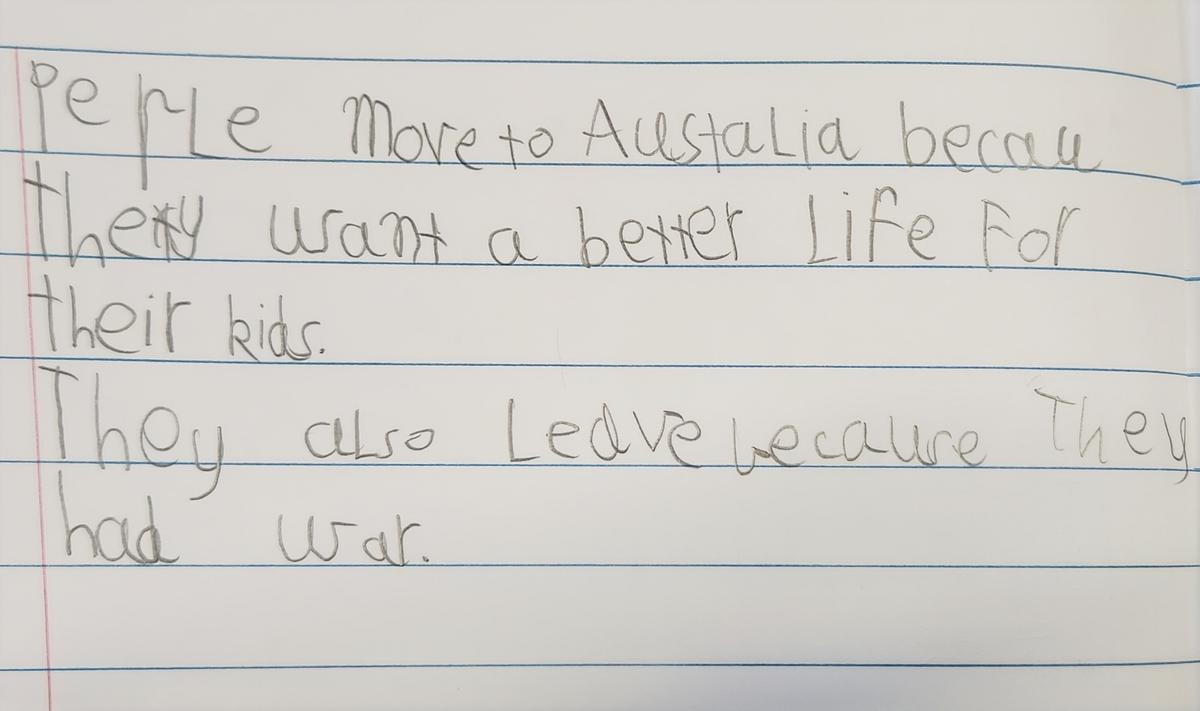 Peple move to Austalia becau
they want a better Life For
their kids.
They also Leave becaure They
had war.